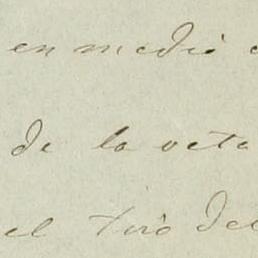 en medio
de la veta
el tiro del